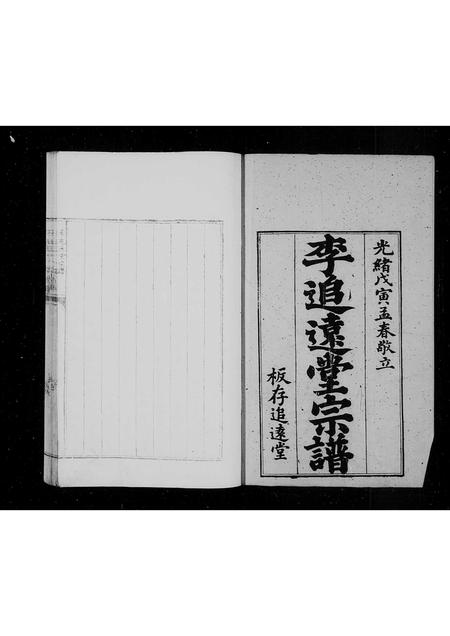 光緒戊寅孟春敬立
李追遠堂宗譜
板存追遠堂